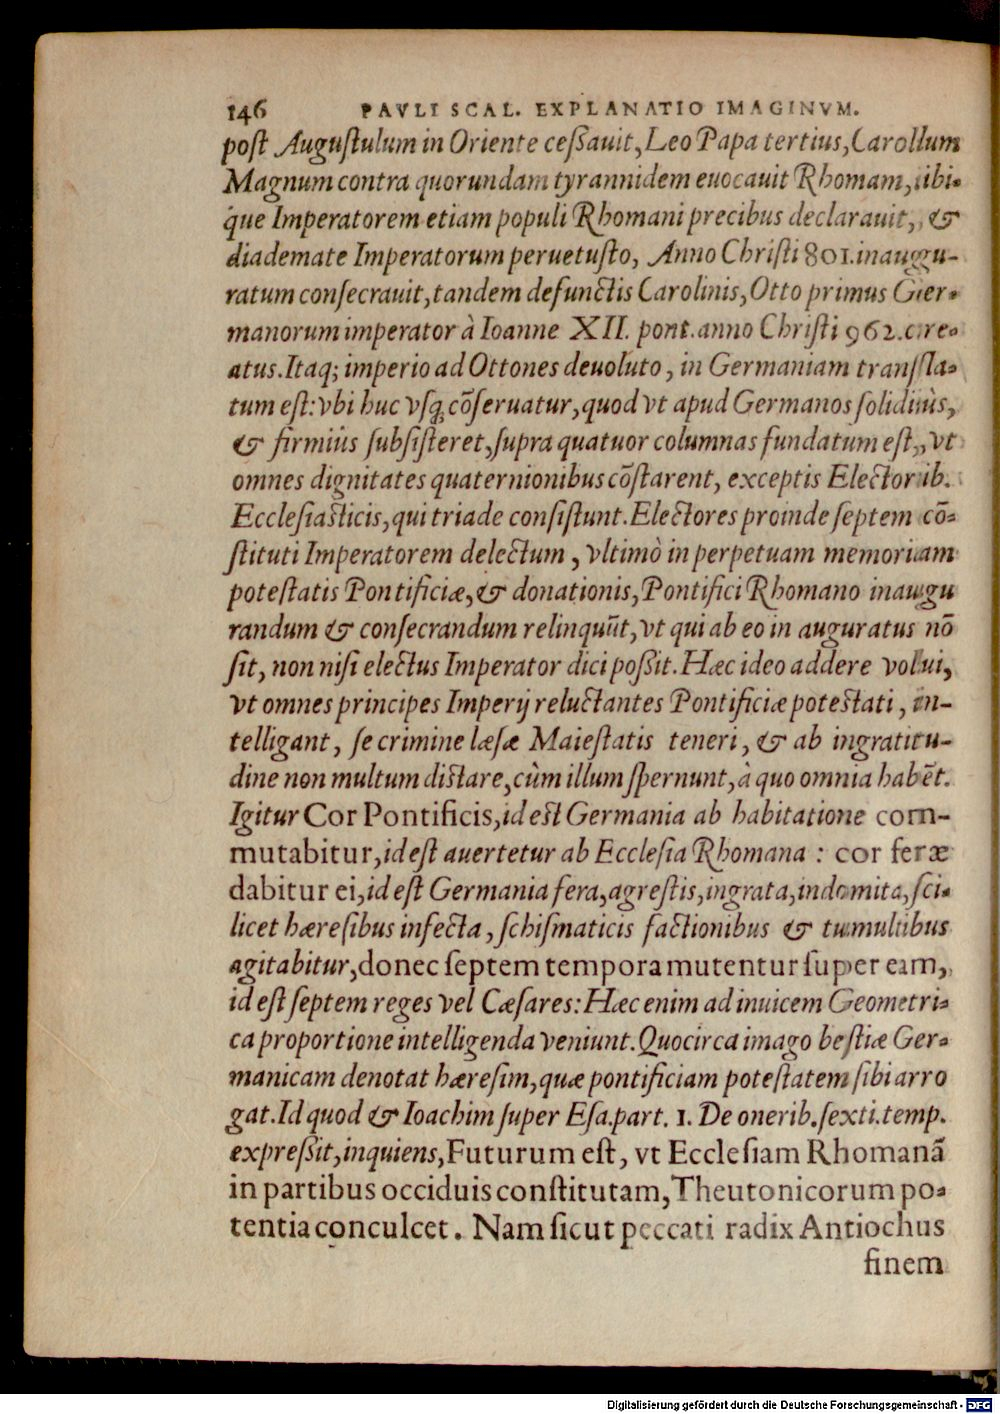 146 PAVLI SCAL. EXPLANATIO IMAGINVM.
poſt Auguſtulum in Oriente ceßauit, Leo Papa tertius, Carollum
Magnum contra quorundam tyrannidem euocauit Rhomam, ibi-
que Imperatorem etiam populi Rhomani precibus declarauit, &
diademate Imperatorum peruetuſto, Anno Chriſti 801. inaugu-
ratum conſecrauit, tandem defunctis Carolinis, Otto primus Ger-
manorum imperator à Ioanne XII. pont. anno Chriſti 962. cre-
atus. Itaq; imperio ad Ottones deuoluto, in Germaniam tranſla-
tum eſt: vbi huc vſq; cõſeruatur, quod vt apud Germanos ſolidiùs,
& firmiùs ſubſiſteret, ſupra quatuor columnas fundatum eſt, vt
omnes dignitates quaternionibus cõſtarent, exceptis Electorib.
Eccleſiaſticis, qui triade conſiſtunt. Electores proinde ſeptem cõ-
ſtituti Imperatorem delectum, vltimò in perpetuam memoriam
poteſtatis Pontificiæ, & donationis, Pontifici Rhomano inaugu
randum & conſecrandum relinquũt, vt qui ab eo in auguratus nõ
ſit, non niſi electus Imperator dici poßit. Hæc ideo addere volui,
vt omnes principes Imperij reluctantes Pontificiæ poteſtati, in-
telligant, ſe crimine læſæ Maieſtatis teneri, & ab ingratitu-
dine non multum diſtare, cùm illum ſpernunt, à quo omnia habẽt.
Igitur Cor Pontificis, id eſt Germania ab habitatione com-
mutabitur, id eſt auertetur ab Eccleſia Rhomana : cor feræ
dabitur ei, id eſt Germania fera, agreſtis, ingrata, indomita, ſci-
licet hæreſibus infecta, ſchiſmaticis factionibus & tumultibus
agitabitur, donec ſeptem tempora mutentur ſuper eam,
id eſt ſeptem reges vel Cæſares: Hæc enim ad inuicem Geometri-
ca proportione intelligenda veniunt. Quocirca imago beſtiæ Ger-
manicam denotat hæreſim, quæ pontificiam poteſtatem ſibi arro
gat. Id quod & Ioachim ſuper Eſa. part. 1. De onerib. ſexti. temp.
expreßit, inquiens, Futurum eſt, vt Eccleſiam Rhomanã
in partibus occiduis conſtitutam, Theutonicorum po-
tentia conculcet. Nam ſicut peccati radix Antiochus
finem
Digitalisierung gefördert durch die Deutsche Forschungsgemeinschaft - DFG